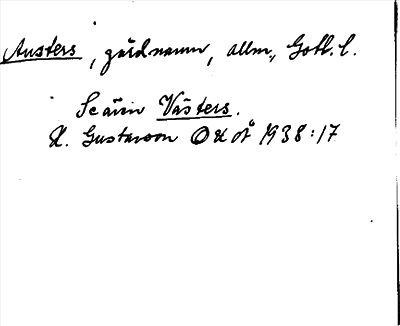 Austers, gårdnamn, allm., Gotl. l.
Se även Västers.
H. Gustavson OUOÅ 1938:17